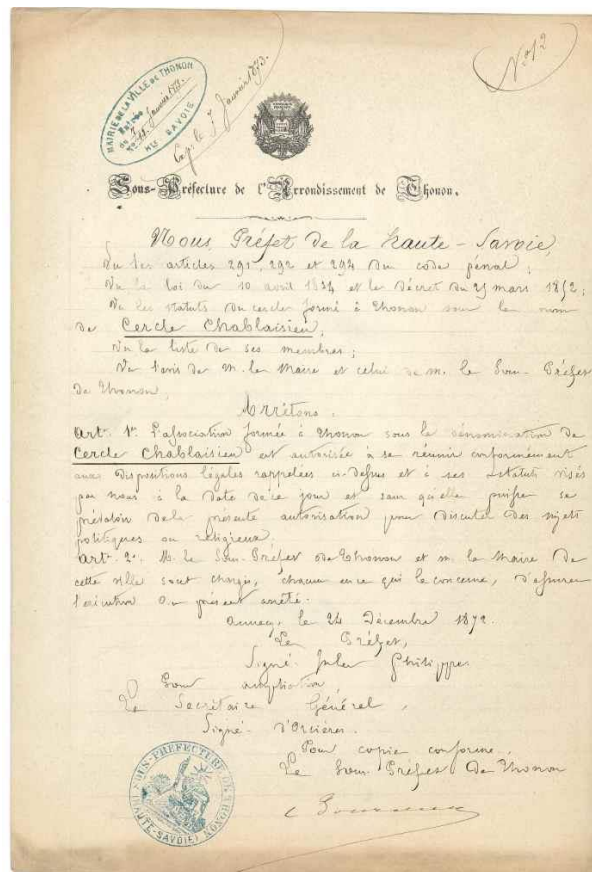 N° 12
MAIRIE DE LA VILLE DE THONON
Hte SAVOIE
Janvier 1873.
Sous-Préfecture de l'Arrondissement de Thonon.
Nous, Préfet de la haute-Savoie,
Vu les articles 291, 292 et 294 du code pénal;
Vu la loi du 10 avril 1834 et le décret du 25 mars 1852;
Vu les statuts du cercle formé à Thonon sous le nom
de Cercle Chablaisien;
Vu la liste de ses membres;
Vu l'avis de M. le Maire et celui de M. le Sous-Préfet
de Thonon,
Arrêtons:
Art. 1er. L'association formée à Thonon sous la dénomination de
Cercle Chablaisien est autorisée à se réunir conformément
aux dispositions légales rappelées ci-dessus et à ses statuts visés
par nous à la date de ce jour et sans qu'elle puisse se
prévaloir de la présente autorisation pour discuter des sujets
politiques ou religieux.
Art. 2e. M. le Sous-Préfet de Thonon et M. le Maire de
cette ville sont chargés, chacun en ce qui le concerne, d'assurer
l'exécution du présent arrêté.
Annecy, le 24 Décembre 1872.
Le Préfet,
Signé: Jules Philippe
Pour ampliation,
Le Secrétaire Général,
Signé: d'Orcières.
Pour copie conforme,
Le Sous-Préfet de Thonon
SOUS-PRÉFECTURE DE THONON
(HAUTE-SAVOIE)